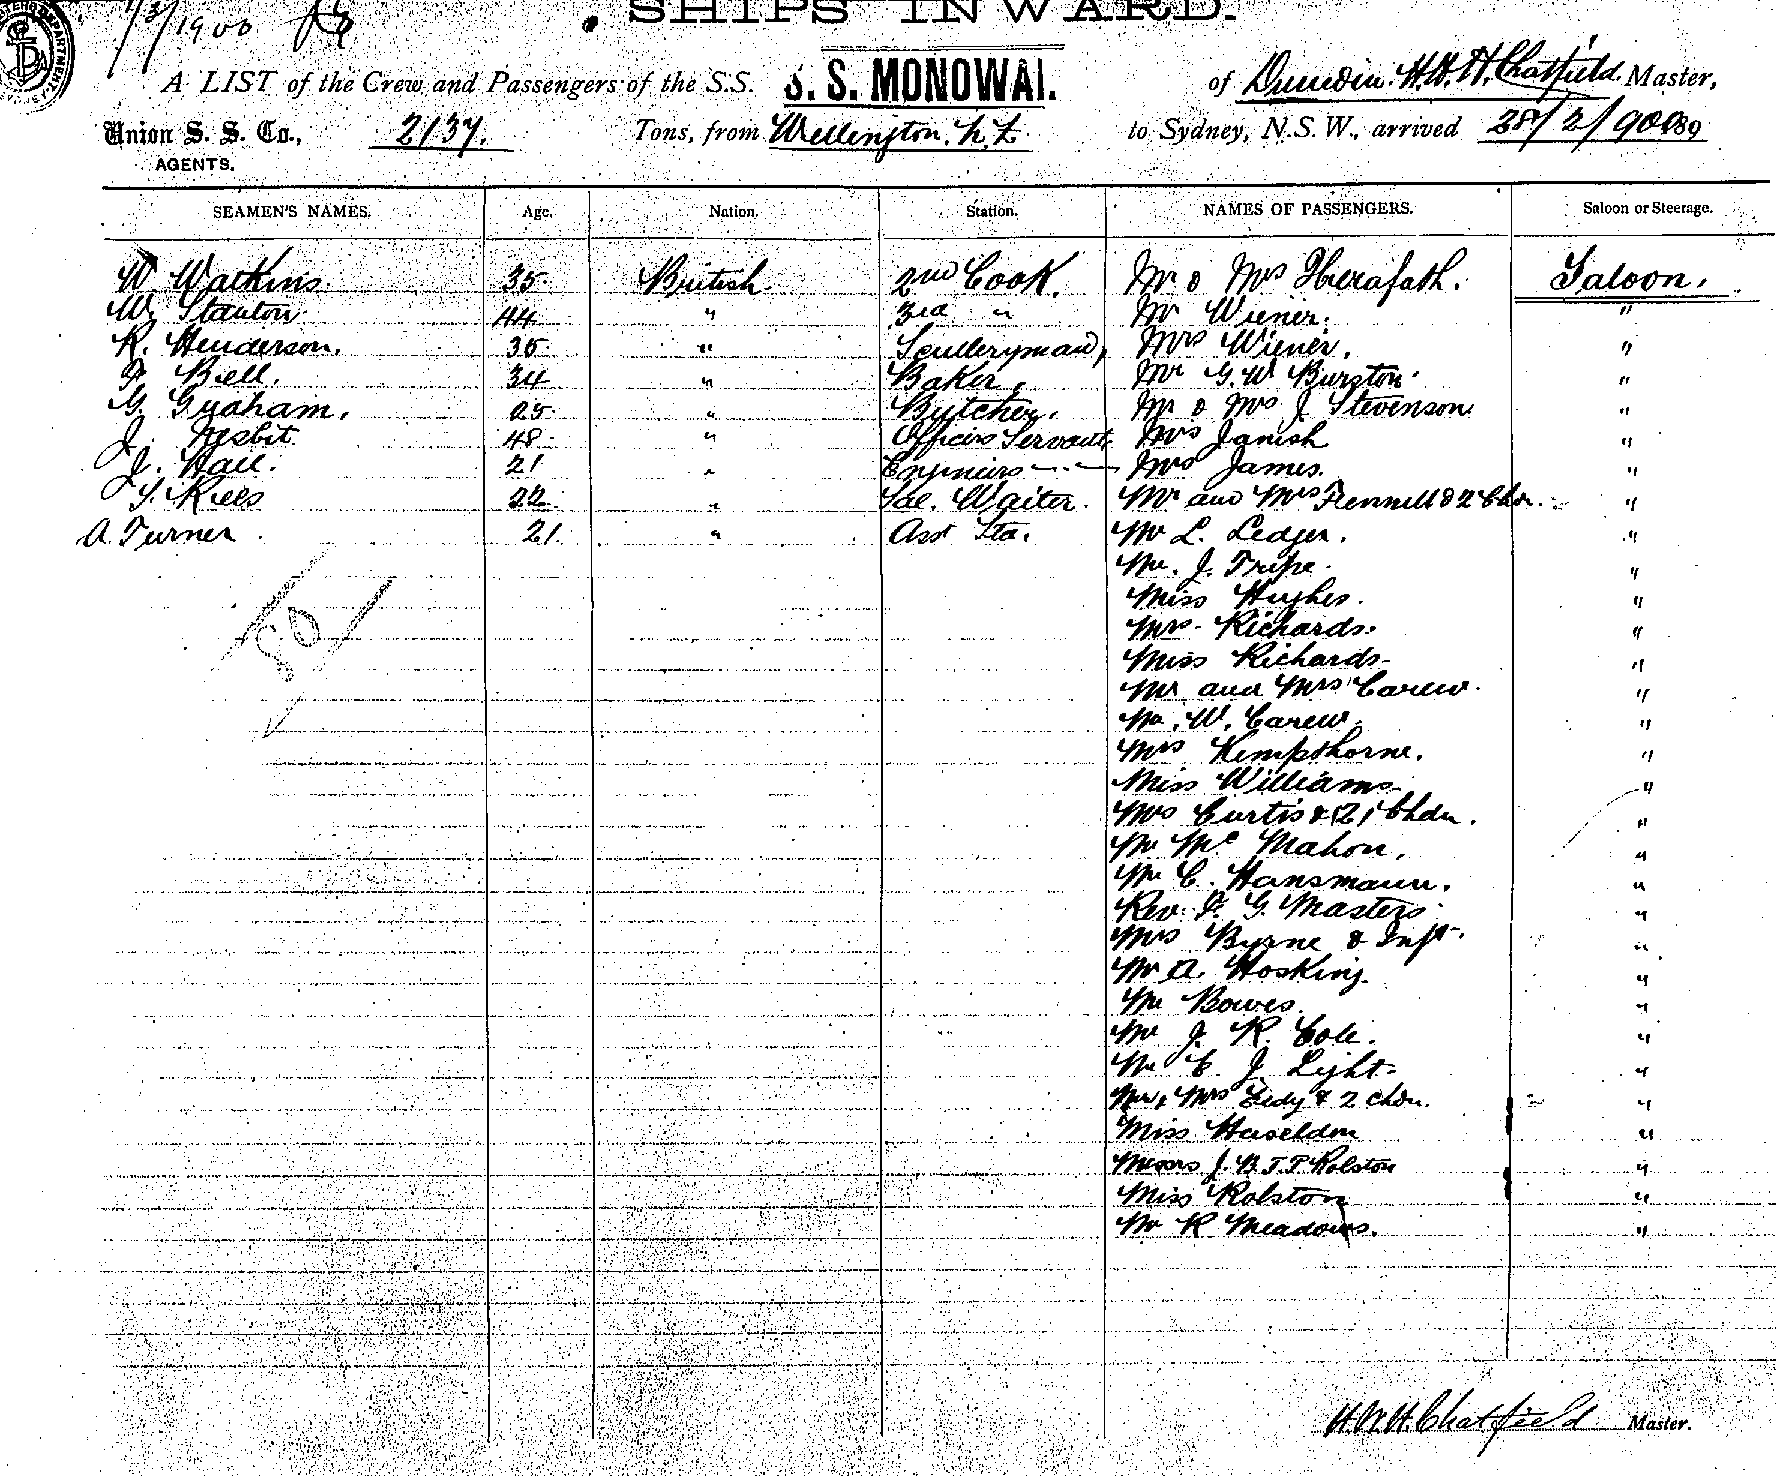 1/3/1900
SHIPS INWARD.
A LIST of the Crew and Passengers of the S.S. S. S. MONOWAI. of Dunedin. H. W. H. Chatfield Master,
Union S. S. Co., 2137. Tons, from Wellington. N. Z. to Sydney, N.S.W., arrived 28/2/900
AGENTS.
SEAMEN'S NAMES. Age. Nation. Station. NAMES OF PASSENGERS. Saloon or Steerage.
W Watkins. 35. British. 2nd Cook. Mr & Mrs Saloon.
W. Stanton. 44 " 3rd " Mr Wiener. "
R. Henderson. 35. " Sculleryman, Mrs Wiener. "
Bell. 34 " Baker, Mr G. W Burston. "
G. Graham. 25 " Butcher. Mr & Mrs J Stevenson. "
J. Nesbit. 48. " Officers Servant Mrs Janish "
J. Hall. 21 " Engineers " Mrs James. "
Rees 22 " Sal. Waiter. Mr and Mrs & 2 Chdn. "
A. Turner. 21. " Asst Std. Mr L. Ledger. "
Mr. J. Tripe. "
Miss Hughes. "
Mrs. Richards. "
Miss Richards. "
Mr and Mrs Carew. "
Mr. W. Carew. "
Mrs Kempthorne. "
Miss Williams. "
Mrs Curtis & Chdn. "
Mr Mc Mahon. "
Mr C. Hansmann. "
Rev. F. G. Masters. "
Mrs Byrne & Inft. "
Mr A. Hosking. "
Mr Bowes. "
Mr J. R. Cole. "
Mr C. J. Light. "
Mr & Mrs & 2 Chdn. "
Miss Haseldon "
Messrs J. B. T. P Rolston "
Miss Rolston "
Mr R Meadows. "
H. W. H. Chatfield Master.